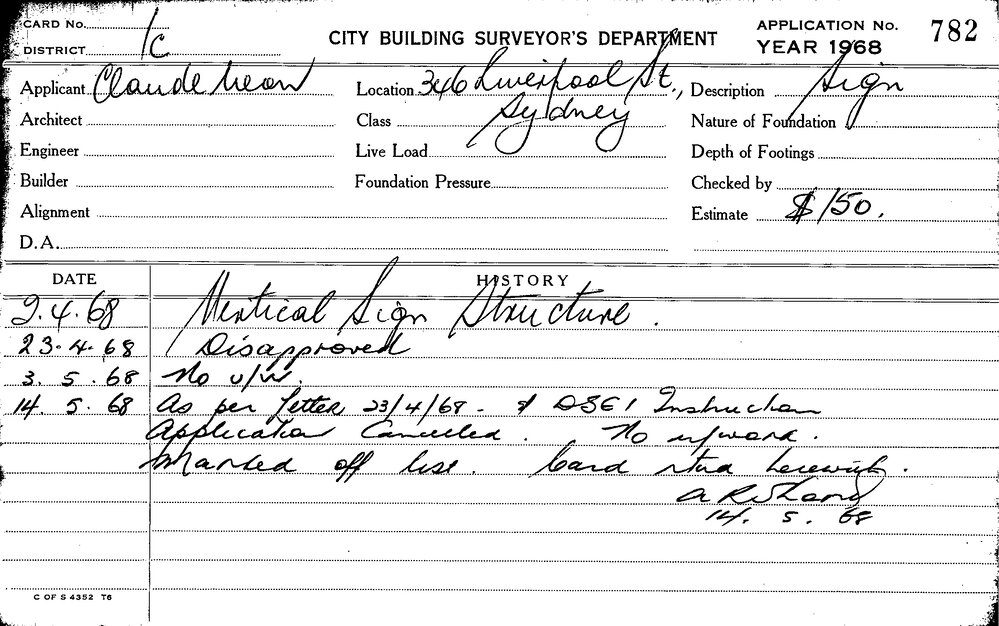 CARD No. 1c
DISTRICT
CITY BUILDING SURVEYOR'S DEPARTMENT
APPLICATION No. 782
YEAR 1968
Applicant Claude Neon
Location 346 Liverpool St.,
Description Sign
Architect
Class Sydney
Nature of Foundation
Engineer
Live Load
Depth of Footings
Builder
Foundation Pressure
Checked by
Alignment
Estimate $150.
D.A.
DATE HISTORY
9.4.68 Vertical Sign Structure.
23.4.68 Disapproved
3.5.68 No u/w.
14.5.68 As per letter 23/4/68 - & Instruction
Application Cancelled. No u/work.
Marked off list. Card rtnd herewith.
14.5.68
C OF S 4352 T6